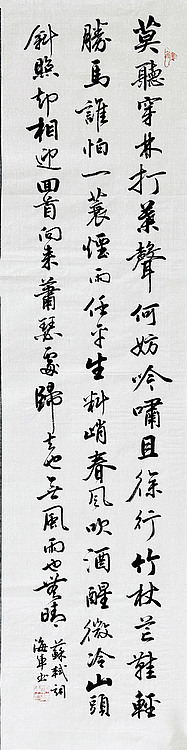 莫聽穿林打葉聲何妨吟嘯且徐行竹杖芒鞋輕
勝馬誰怕一蓑煙雨任平生料峭春風吹酒醒微冷山頭
斜照却相迎回首向来蕭瑟處歸去也无風雨也無晴
蘇軾詞
海軍书